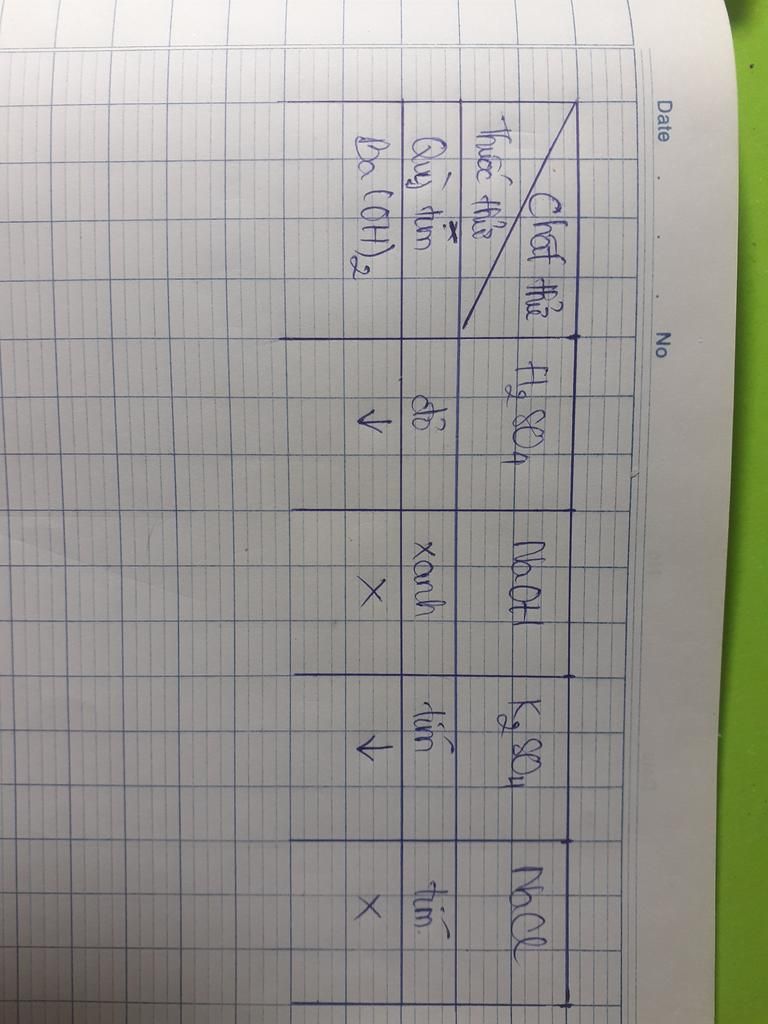 Date . . .
No
Chất thử H2SO4 NaOH K2SO4 NaCl
Thuốc thử
Quỳ tím đỏ xanh tím tím
Ba(OH)2 ↓ × ↓ ×